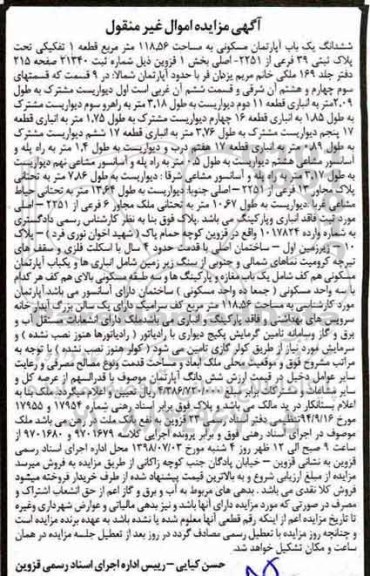 آگهی مزایده اموال غیر منقول
ششدانگ یک باب آپارتمان مسکونی به مساحت ۱۱۸،۵۶ متر مربع قطعه ۱ تفکیکی تحت
پلاک ثبتی ۳۹ فرعی از ۲۲۵۱- اصلی بخش ۱ قزوین ذیل شماره ثبت ۲۱۳۴۰ صفحه ۲۱۵
دفتر جلد ۱۶۹ ملکی خانم مریم یزدان فر با حدود آپارتمان شمالا: در ۹ قسمت که قسمتهای
سوم چهارم و هشتم آن شرقی و قسمت ششم آن غربی است اول دیواریست مشترک به طول
۲،۰۹متر به انباری قطعه ۱۱ دوم دیواریست به طول ۳،۱۸ متر به راهرو سوم دیواریست مشترک
به طول ۱،۸۵ به انباری قطعه ۱۶ چهارم دیواریست مشترک به طول ۱،۷۵ متر به انباری قطعه
۱۷ پنجم دیواریست مشترک به طول ۳،۷۶ متر به انباری قطعه ۱۷ ششم دیواریست مشترک
به طول ۰،۸۹ متر به انباری قطعه ۱۷ هفتم درب و دیواریست به طول ۱،۴ متر به راه پله و
آسانسور مشاعی هشتم دیواریست به طول ۰،۵ متر به راه پله و آسانسور مشاعی نهم دیواریست
به طول ۳،۰۷ متر به راه پله و آسانسور مشاعی شرقا : دیواریست به طول ۷،۸۶ متر به تحتانی
پلاک مجاور ۱۳ فرعی از ۲۲۵۱ – اصلی جنوبا: دیواریست به طول ۱۳،۶۴ متر به تحتانی حیاط
مشاعی غربا :دیواریست به طول ۱۰،۶۷ متر به تحتانی ملک مجاور ۶ فرعی از ۲۲۵۱ – اصلی
مورد ثبت فاقد انباری وپارکینگ می باشد .پلاک فوق بنا به نظر کارشناس رسمی دادگستری
به شماره وارده ۱۰۱۷۸۲۴ واقع در قزوین کوچه حمام پاک ( شهید اخوان نوری فرد ) – پلاک
۱۰ –زیرزمین اول – ساختمان اصلی با قدمت حدود ۴ سال با اسکلت فلزی و سقف های
تیرچه کرومیت نماهای شمالی و جنوبی از سنگ زیر زمین شامل انباری ها و یکباب آپارتمان
مسکونی هم کف شامل یک باب مغازه و پارکینگ ها و سه طبقه مسکونی بالای هم کف هر کدام
با سه واحد مسکونی ( جمعا ده واحد مسکونی ) ساختمان دارای آسانسور می باشد آپارتمان
مورد کارشناسی به مساحت ۱۱۸،۵۶ متر مربع کف سرامیک دارای یک سالن بزرگ آبدار خانه
سرویس های بهداشتی و فاقد پارکینگ و انباری می باشد ملک دارای انشعابات مستقل آب و
برق و گاز وسامانه تامین گرمایش پکیج دیواری با رادیاتور ( رادیاتورها هنوز نصب نشده ) و
سرمایش مورد نیاز از طریق کولر گازی تامین می شود ( کولر هنوز نصب نشده ) با توجه به
مراتب مشروح فوق و موقعیت محلی ملک ابعاد و مساحت قدمت ونوع مصالح مصرفی و رعایت
سایر عوامل دخیل در قیمت ارزش شش دانگ آپارتمان موصوف با قدرالسهم از عرصه کل و
سایر مشاعات و مشترکات برابر مبلغ ریال تعیین و اعلام میگردد. ملک بنا به
اعلام بستانکار در ید مالک می باشد . پلاک فوق برابر اسناد رهنی شماره ۱۷۹۵۴ و ۱۷۹۵۵
مورخ ۹۴/۹/۱۶ تنظیمی دفتر اسناد رسمی قزوین در رهن بانک ملت قزوین می باشد ملک
موصوف در اجرای اسناد رهنی فوق و برابر پرونده اجرایی کلاسه ۹۷۰۱۶۷۹ و ۹۷۰۱۶۸۰ از
ساعت ۹ صبح الی ۱۲ ظهر روز ۴ شنبه مورخ ۱۳۹۸/۰۷/۰۳ محل اداره اجرای اسناد رسمی
قزوین به نشانی قزوین – خیابان پادگان جنب کوچه زاکانی از طریق مزایده به فروش میرسد
مزایده از مبلغ ارزیابی شروع و به بالاترین قیمت پیشنهاد شده از طرف خریدار فروخته میشود
فروش کلا نقدی می باشد . بدهی های مربوط به آب و برق و گاز اعم از حق انشعاب اشتراک و
مصرف در صورتی که مورد مزایده دارای آنها باشد و نیز بدهی مالیاتی و عوارض شهرداری وغیره
تا تاریخ مزایده اعم از اینکه رقم قطعی آنها معلوم شده یا نشده باشد به عهده برنده مزایده است
و چنانچه روز مزایده با تعطیل رسمی مصادف گردد در روز بعد از تعطیل جلسه مزایده در همان
ساعت و مکان تشکیل خواهد شد.
حسن کیایی – رییس اداره اجرای اسناد رسمی قزوین